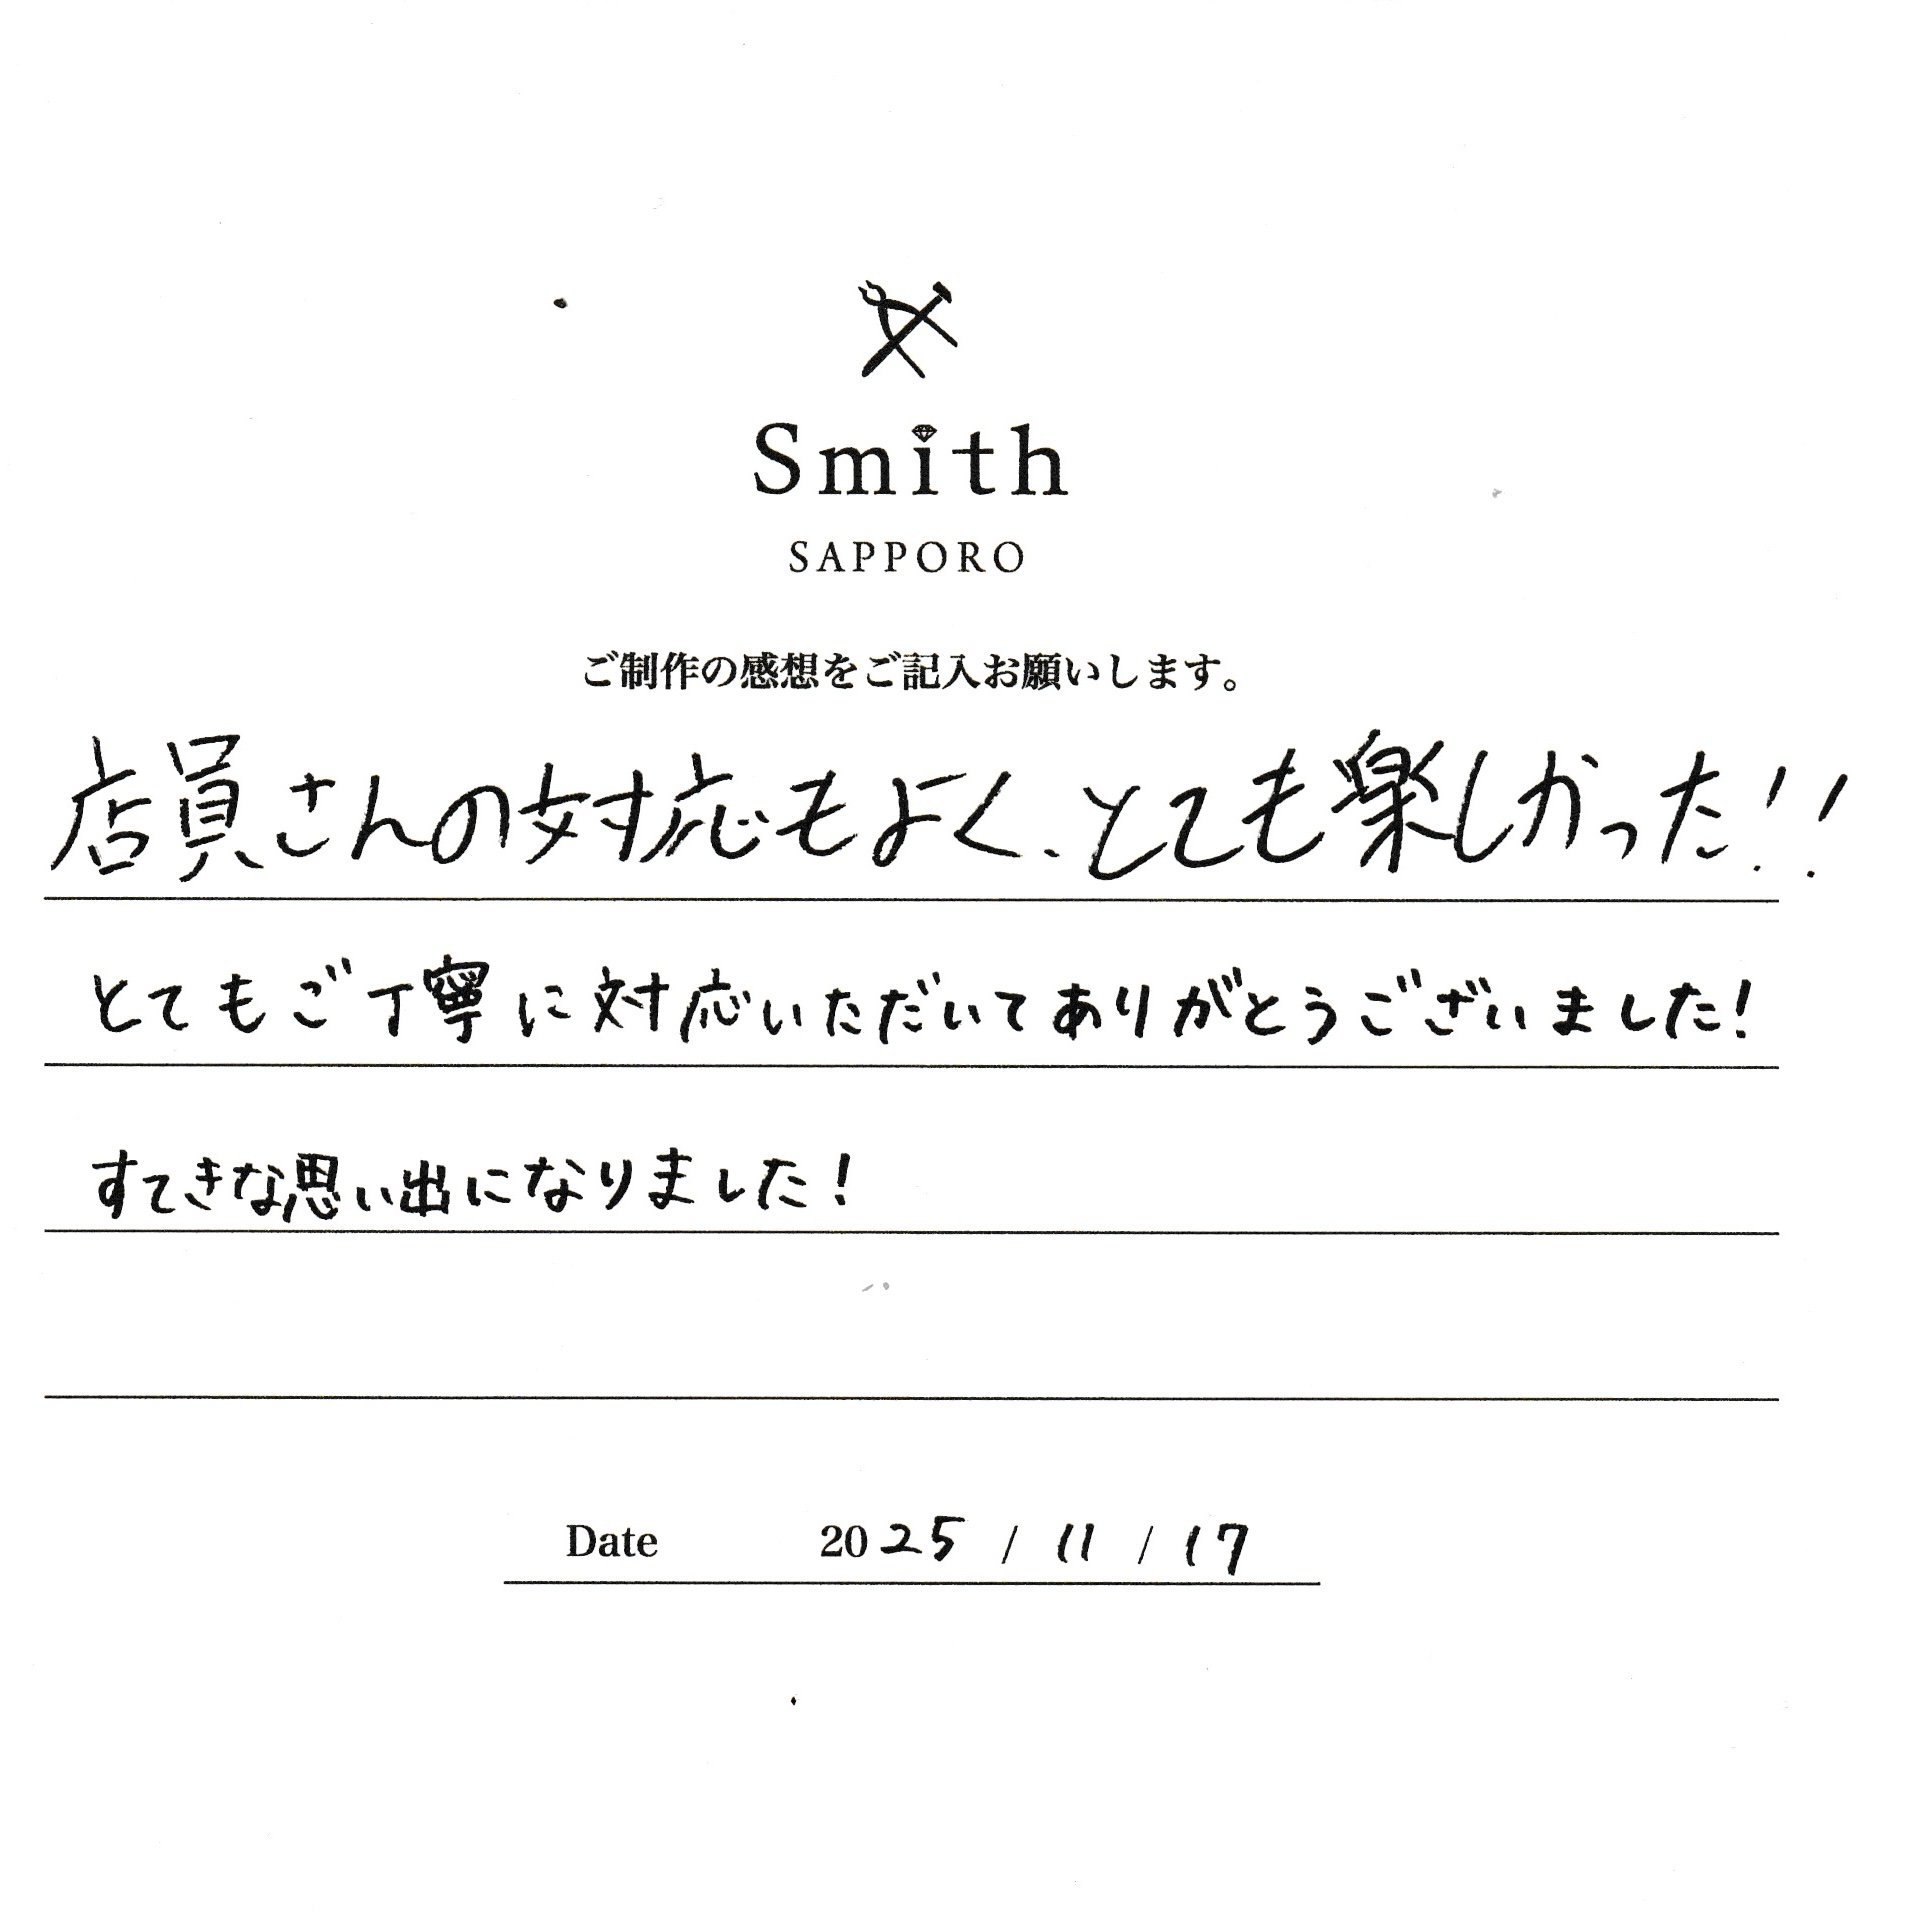 Smith
SAPPORO
ご制作の感想をご記入お願いします。
店員さんの対応もよく、とても楽しかった!!
とてもご丁寧に対応いただいてありがとうございました!
すてきな思い出になりました!
Date 2025 / 11 / 17